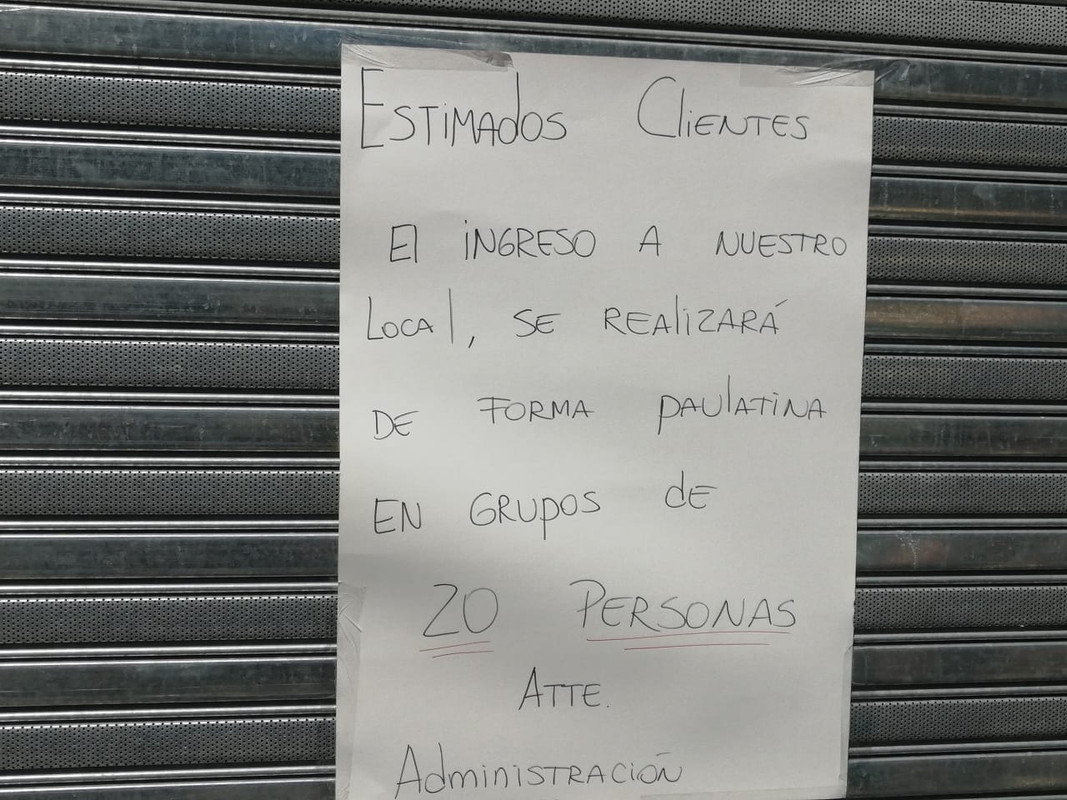 Estimados Clientes
El ingreso a nuestro
local, se realizará
de forma paulatina
en grupos de
20 Personas
Atte.
Administración